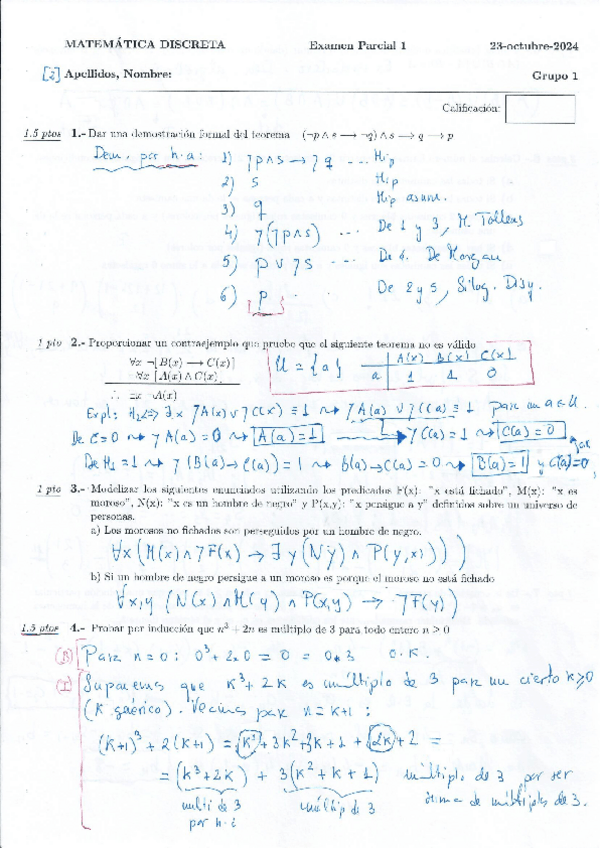 MATEMÁTICA DISCRETA Examen Parcial 1 23-octubre-2024
[2] Apellidos, Nombre: Grupo 1
Calificación:
1.5 ptos 1.- Dar una demostración formal del teorema (¬p ∧ s ⟶ ¬q) ∧ s ⟶ q ⟶ p
Dem. por h.a: 1) ¬p∧s → ¬q ... Hip
2) s Hip
3) q Hip asum.
4) ¬(¬p∧s) ... De 1 y 3, M. Tollens
5) p ∨ ¬s ... De 4. De Morgan
6) p De 2 y 5, Silog. Disy.
1 pto 2.- Proporcionar un contraejemplo que pruebe que el siguiente teorema no es válido
∀x ¬[B(x) ⟶ C(x)]
A(x) B(x) C(x)
U = {a} a 1 1 0
∀x [A(x) ∧ C(x)]
∴ A(x)
Expl: H₂ ⇔ ∃x ¬A(x) ∨ ¬C(x) ≡ 1 ⇝ ¬A(a) ∨ ¬C(a) ≡ 1 para un a∈U.
De C=0 ⇝ ¬A(a) = 0 ⇝ A(a)=1 ¬C(a) = 1 ⇝ C(a) = 0
De H₁ = 1 ⇝ ¬(B(a)→C(a)) = 1 ⇝ B(a)→C(a) = 0 ⇝ B(a)=1 y C(a)=0
1 pto 3.- Modelizar los siguientes enunciados utilizando los predicados F(x): "x está fichado", M(x): "x es
moroso", N(x): "x es un hombre de negro" y P(x,y): "x persigue a y" definidos sobre un universo de
personas.
a) Los morosos no fichados son perseguidos por un hombre de negro.
∀x (M(x) ∧ ¬F(x) → ∃y (N(y) ∧ P(y,x)))
b) Si un hombre de negro persigue a un moroso es porque el moroso no está fichado
∀x,y (N(x) ∧ M(y) ∧ P(x,y) → ¬F(y))
1.5 ptos 4.- Probar por inducción que n³ + 2n es múltiplo de 3 para todo entero n ≥ 0
(B) Para n=0: 0³ + 2·0 = 0 = 0·3 O.K.
(I) Supongamos que K³ + 2K es múltiplo de 3 para un cierto K≥0
(K genérico). Veamos para n=K+1:
(K+1)³ + 2(K+1) = K³ + 3K² + 3K + 1 + 2K + 2 =
= (K³+2K) + 3(K² + K + 1) múltiplo de 3 por ser
multi de 3 múltip de 3 suma de múltiplos de 3.
por h.i